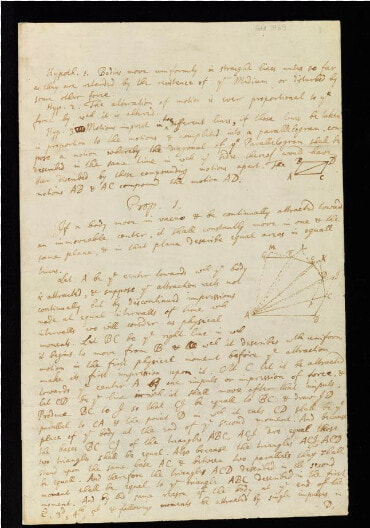 Add. 3965
Hypoth. 1. Bodies move uniformly in straight lines unless so far
as they are retarded by the resistence of ye Medium or disturbed by
some other force.
Hyp. 2. The alteration of motion is ever proportional to ye
force by wch it is altered.
Hyp. 3 Motions imprest in two different lines, if those lines be taken
in proportion to the motions & completed into a parallelogram, com
pose a motion whereby the diagonal of ye Parallelogram shall be
described in the same time in wch ye sides thereof would have
been described by those compounding motions apart. The
motions AB & AC compound the motion AD.
B
D
A
C
Prop. 1.
If a body move in vacuo & be continually attracted toward
an immoveable center, it shall constantly move in one & the
same plane, & in that plane describe equal areas in equall
times.
Let A be ye center towards wch ye body
is attracted, & suppose ye attraction acts not
continually but by discontinued impressions
made at equal intervalls of time wch
intervalls we will consider as physical
moments. Let BC be ye right line in wch
it begins to move from B & wch it describes wth uniform
motion in the first physical moment before ye attraction
make its first impression upon it. At C let it be attracted
towards ye center A by one impuls or impression of force, &
let CD be ye line in wch it shall move after that impuls.
Produce BC to I so that CI be equall to BC & draw ID
parallel to CA & the point D in wch it cuts CD shall be ye
place of ye body at the end of ye second moment. And because
the bases BC CI of the triangles ABC, ACI are equal those
two triangles shall be equal. Also because the triangles ACI, ACD
stand upon the same base AC & between two parallels they shall
be equall. And therefore the triangle ACD described in the second
moment shall be equal to ye triangle ABC described in the first
moment. And by the same reason if the body at the end of the
2d, 3d, 4th, 5th & following moments be attracted by single impulses in
D,